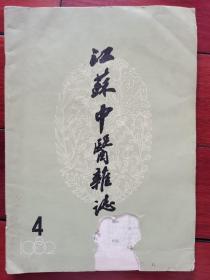 江蘇中醫雜誌
4
1982